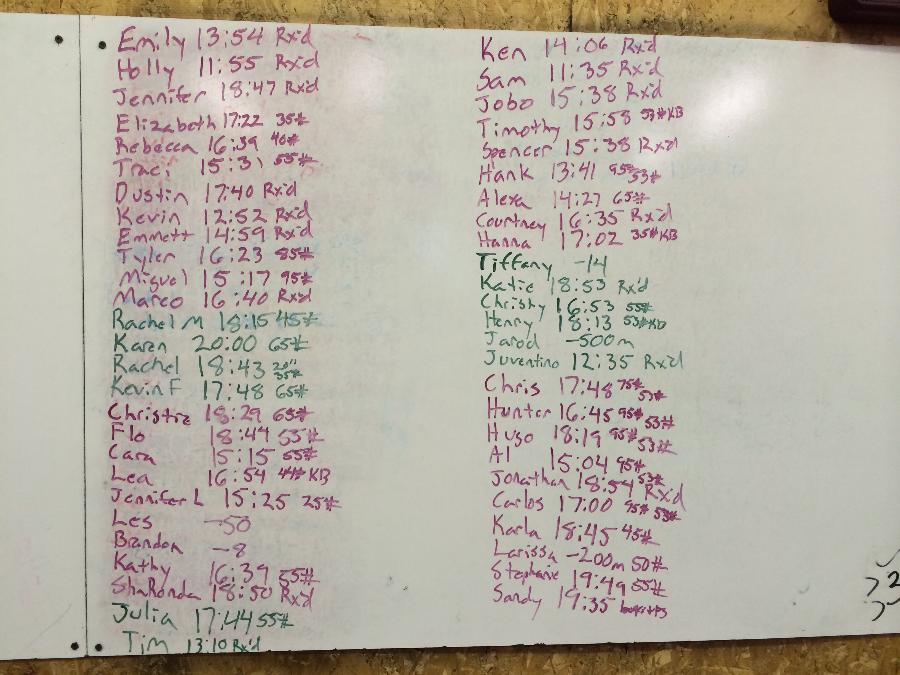 Emily 13:54 Rx'd
Holly 11:55 Rx'd
Jennifer 18:47 Rx'd
Elizabeth 17:22 35#
Rebecca 16:39 40#
Traci 15:31 55#
Dustin 17:40 Rx'd
Kevin 12:52 Rx'd
Emmett 14:59 Rx'd
Tyler 16:23 85#
Miguel 15:17 95#
Marco 16:40 Rx'd
Rachel M 18:15 45#
Karen 20:00 65#
Rachel 18:43 20" 35#
Kevin F 17:48 65#
Christie 18:29 65#
Flo 18:44 55#
Cara 15:15 55#
Lea 16:54 44# KB
Jennifer L 15:25 25#
Les -50
Brandon -8
Kathy 16:39 55#
ShaRonda 18:50 Rx'd
Julia 17:44 55#
Tim 13:10 Rx'd
Ken 14:06 Rx'd
Sam 11:35 Rx'd
Jobo 15:38 Rx'd
Timothy 15:58 53# KB
Spencer 15:38 Rx'd
Hank 13:41 95# 53#
Alexa 14:27 65#
Courtney 16:35 Rx'd
Hanna 17:02 35# KB
Tiffany -14
Katie 18:53 Rx'd
Christy 16:53 55#
Henry 18:13 53# KB
Jarod -500m
Juventino 12:35 Rx'd
Chris 17:48 75# 53#
Hunter 16:45 95# 53#
Hugo 18:19 95# 53#
Al 15:04 95# 53#
Jonathan 18:54 Rx'd
Carlos 17:00 95# 53#
Karla 18:45 45#
Larissa -200m 50#
Stephanie 19:49 55#
Sandy 19:35